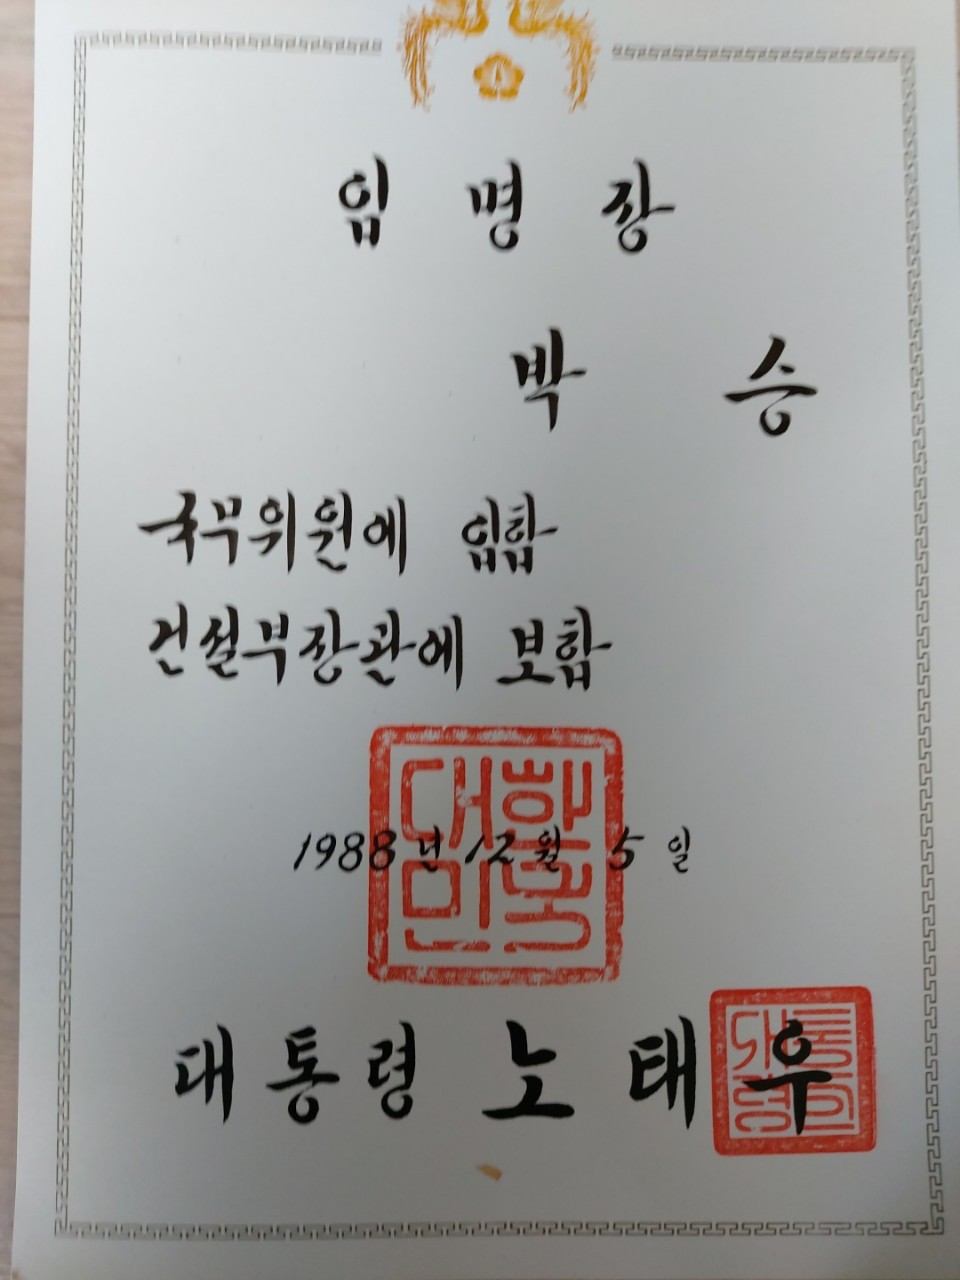 임명장
박 승
국무위원에 임함
건설부장관에 보함
대한민국
1988년 12월 5일
대통령 노태우